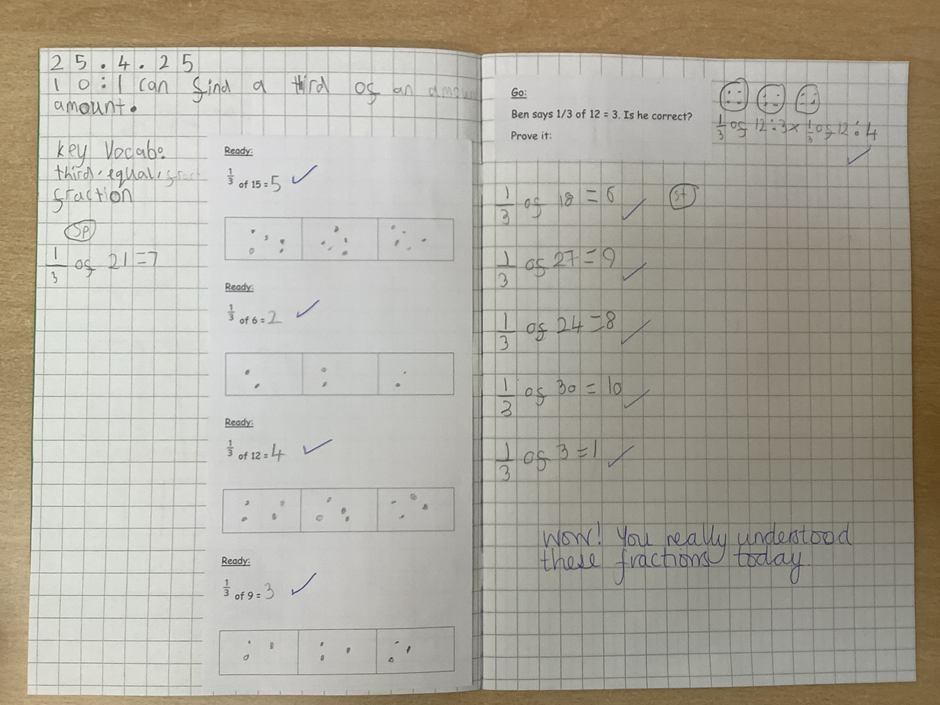 25.4.25
10:I can find a third of an amount
amount.
key Vocab:
third, equal, fract
fraction
Sp
1/3 of 21=7
Ready:
1/3 of 15 = 5
Ready:
1/3 of 6 = 2
Ready:
1/3 of 12 = 4
Ready:
1/3 of 9 = 3
Go:
Ben says 1/3 of 12 = 3. Is he correct?
Prove it:
1/3 of 12÷3× 1/3 of 12÷4
1/3 of 18 = 6
St
1/3 of 27 = 9
1/3 of 24 = 8
1/3 of 30 = 10
1/3 of 3 = 1
Wow! You really understood
these fractions today